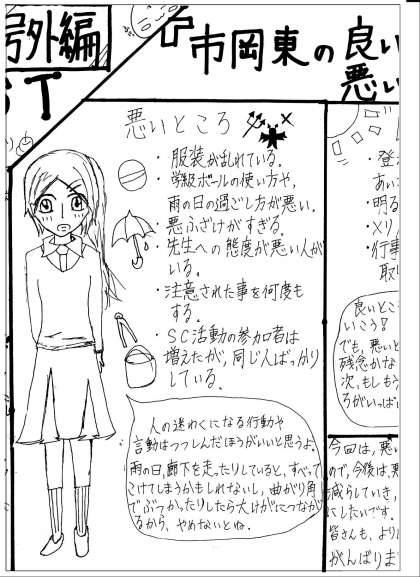 号外編
ST
『市岡東の良い
悪い
悪いところ
・服装が乱れている。
・学級ボールの使い方や、
雨の日の過ごし方が悪い。
・悪ふざけがすぎる。
・先生への態度が悪い人が
いる。
・注意された事を何度も
する。
・SC活動の参加者は
増えたが、同じ人ばっかり
している。
人の迷わくになる行動や
言動はつつしんだほうがいいと思うよ。
雨の日、廊下を走ったりしていると、すべって
こけてしまうかもしれないし、曲がり角
でぶつかったりしたら大けがにつなが
るから、やめないとね。
・登
あい
・明る
・メリ
・行事
取り
良いとこ
いこう!
でも、悪いと
残念かな
次、もしもう
ろがいっぱい
今回は、悪い
ので、今後は、悪
減らしていき、
にしたいです。
皆さんも、より
がんばりま